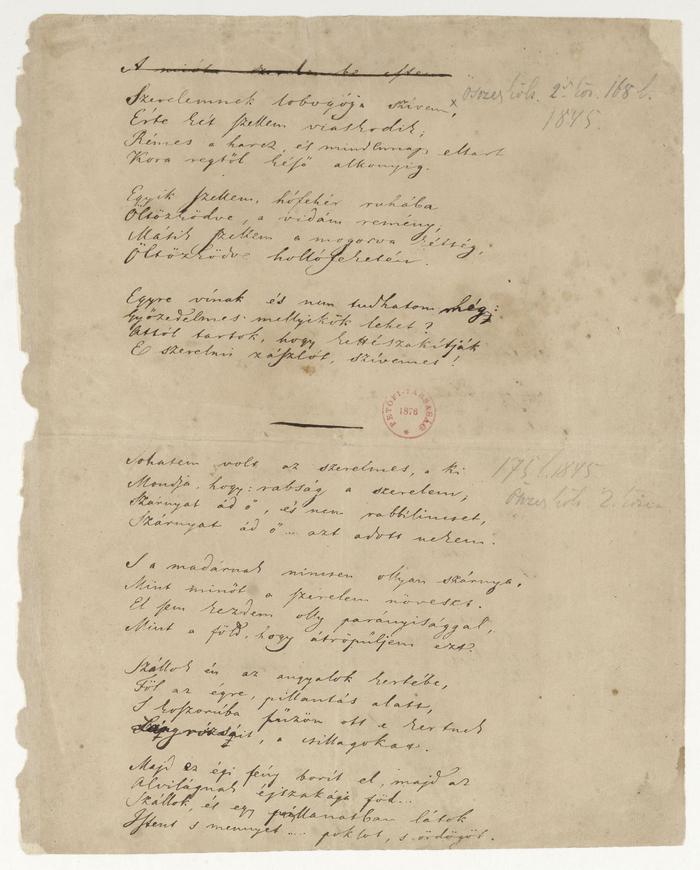 A mióta szerelmbe estem
Szerelemnek lobogója szivem,x
Érte két szellem viaskodik;
Rémes a harcz, és mindennap eltart
Kora regtől késő alkonyig.
Egyik szellem, hófehér ruhába
Öltözködve, a vidám remény,
Másik szellem a mogorva kétség,
Öltözködve hollófeketén.
Egyre vínak és nem tudhatom még:
Győzedelmes mellyikök lehet?
Attól tartok, hogy kettészakítják
E szerelmi zászlót, szívemet!
PETŐFI-TÁRSASÁG
1876
Sohasem volt az szerelmes, a ki
Mondja, hogy: rabság a szerelem,
Szárnyat ád ő, és nem rabbilincset,
Szárnyat ád ő... azt adott nekem.
S a madárnak nincsen ollyan szárnya,
Mint minőt a szerelem növeszt.
El sem kezdem olly parányisággal,
Mint a föld, hogy átröpűljem ezt.
Szállok én az angyalok kertébe,
Föl az égre, pillantás alatt,
S koszorúba fűzöm ott e kertnek
Lángrózsáit, a csillagokat.
Majd az égi fény borít el, majd az
Alvilágnak éjszakája föd...
Szállok, és egy pillanatban látok
Istent s mennyet... poklot, s ördögöt.
Összes költ. 2d köt. 168 l.
1845.
175 l. 1845
Összes költ. 2.